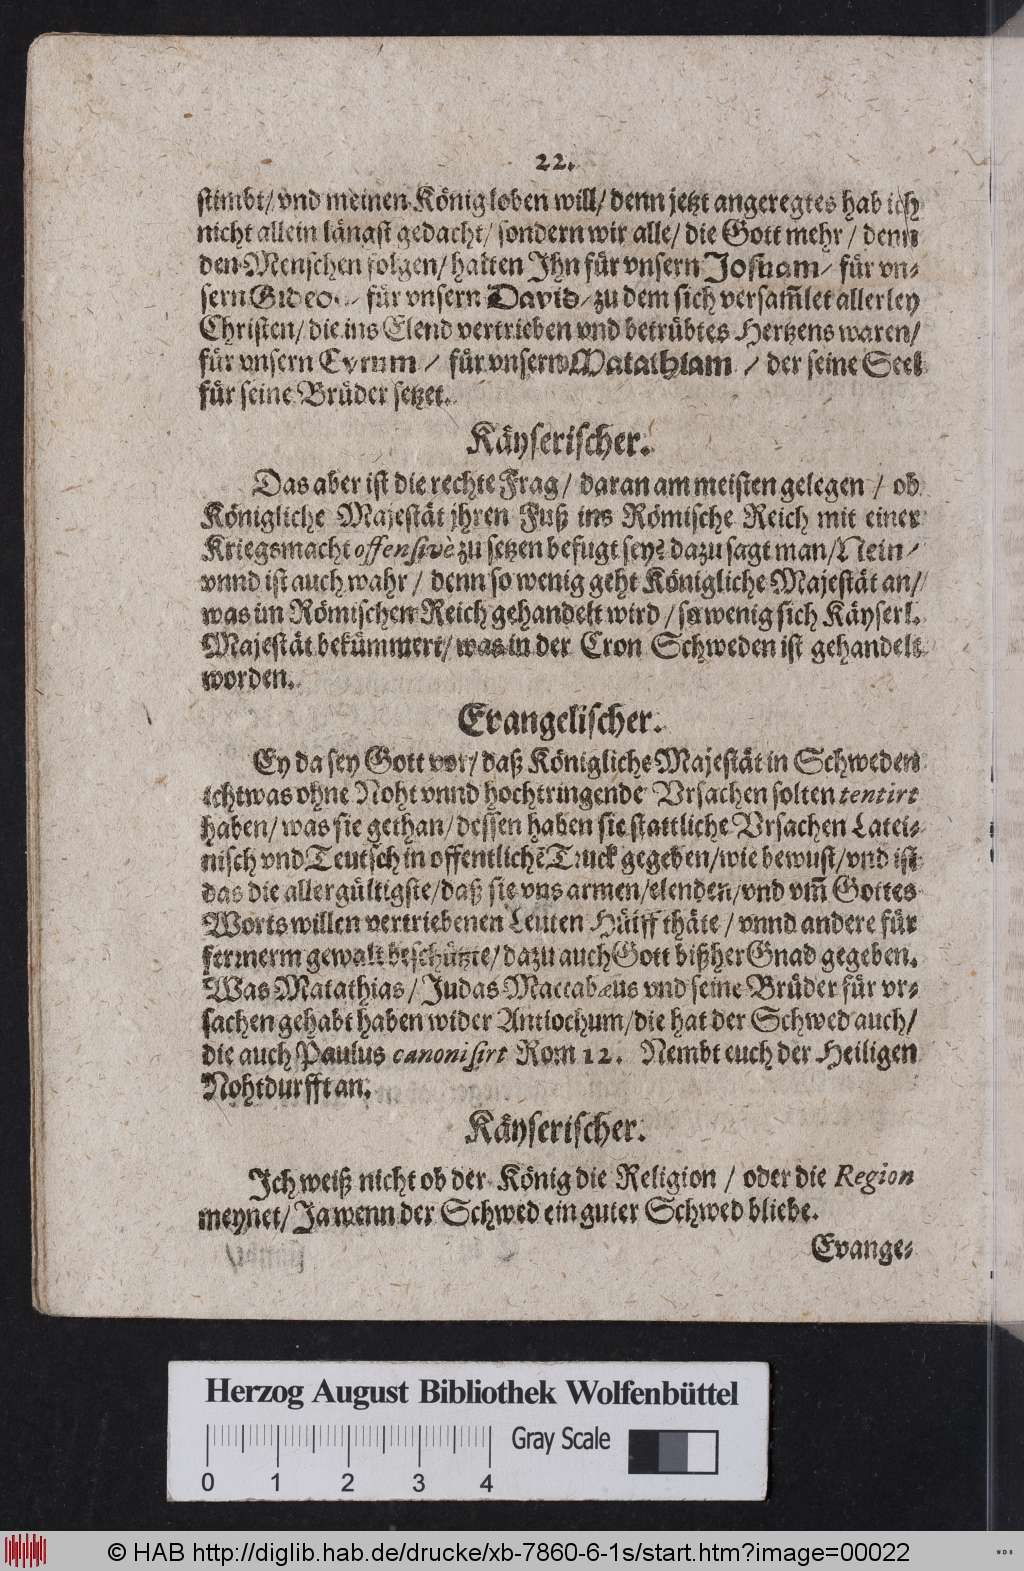 22.
stimbt/ vnd meinen König loben will/ denn jetzt angeregtes hab ich
nicht allein längst gedacht/ sondern wir alle/ die Gott mehr / denn
den Menschen folgen/ halten Ihn für vnsern Josuam/ für vn-
sern / für vnsern David/ zu dem sich versam̃let allerley
Christen/ die ins Elend vertrieben vnd betrübtes Hertzens waren/
für vnsern Cyrum / für vnsern Matathiam / der seine Seel
für seine Brüder setzet.
Käyserischer.
Das aber ist die rechte Frag/ daran am meisten gelegen / ob
Königliche Majestät jhren Fuß ins Römische Reich mit einer
Kriegsmacht offensivè zu setzen befugt sey? dazu sagt man/ Nein/
vnnd ist auch wahr / denn so wenig geht Königliche Majestät an/
was im Römischen Reich gehandelt wird / so wenig sich Käyserl.
Majestät bekümmert/ was in der Cron Schweden ist gehandelt
worden.
Evangelischer.
Ey da sey Gott vor/ daß Königliche Majestät in Schweden
ichtwas ohne Noht vnnd hochtringende Vrsachen solten tentirt
haben/ was sie gethan/ dessen haben sie stattliche Vrsachen Latei-
nisch vnd Teutsch in offentlichẽ Truck gegeben/ wie bewust/ vnd ist
das die allergültigste/ daß sie vns armen/ elenden/ vnd vm̃ Gottes
Worts willen vertriebenen Leuten Hülff thäte / vnnd andere für
fernerm gewalt beschützte/ dazu auch Gott bißher Gnad gegeben.
Was Matathias/ Judas Maccabæus vnd seine Brüder für vr-
sachen gehabt haben wider Antiochum/ die hat der Schwed auch/
die auch Paulus canonisirt Rom 12. Nembt euch der Heiligen
Nohtdurfft an.
Käyserischer.
Ich weiß nicht ob der König die Religion / oder die Region
meynet/ Ja wenn der Schwed ein guter Schwed bliebe.
Evange-
Herzog August Bibliothek Wolfenbüttel
Gray Scale
0 1 2 3 4
© HAB http://diglib.hab.de/drucke/xb-7860-6-1s/start.htm?image=00022